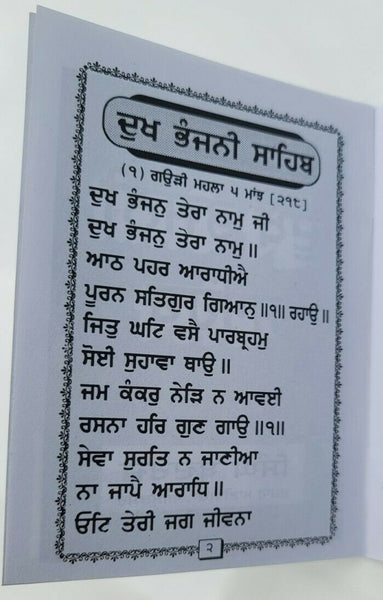 ਦੁਖ ਭੰਜਨੀ ਸਾਹਿਬ
(੧) ਗਉੜੀ ਮਹਲਾ ੫ ਮਾਂਝ [੨੧੮]
ਦੁਖ ਭੰਜਨੁ ਤੇਰਾ ਨਾਮੁ ਜੀ
ਦੁਖ ਭੰਜਨੁ ਤੇਰਾ ਨਾਮੁ॥
ਆਠ ਪਹਰ ਆਰਾਧੀਐ
ਪੂਰਨ ਸਤਿਗੁਰ ਗਿਆਨੁ॥੧॥ ਰਹਾਉ॥
ਜਿਤੁ ਘਟਿ ਵਸੈ ਪਾਰਬ੍ਰਹਮੁ
ਸੋਈ ਸੁਹਾਵਾ ਥਾਉ॥
ਜਮ ਕੰਕਰੁ ਨੇੜਿ ਨ ਆਵਈ
ਰਸਨਾ ਹਰਿ ਗੁਣ ਗਾਉ॥੧॥
ਸੇਵਾ ਸੁਰਤਿ ਨ ਜਾਣੀਆ
ਨਾ ਜਾਪੈ ਆਰਾਧਿ॥
ਓਟਿ ਤੇਰੀ ਜਗ ਜੀਵਨਾ
੨